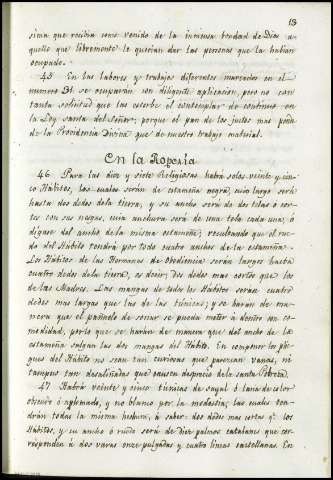 13
sima que recibia como venido de la inmensa bondad de Dios a-
quello que libremente le querian dar las personas que la habian
ocupado.
45 En las labores y trabajos diferentes marcados en el
numero 31 se ocuparán con diligente aplicacion, pero no con
tanta solicitud que las estorbe el contemplar de continuo en
la Ley santa del Señor; porque el pan de los justos mas pende
de la Providencia Divina que de nuestro trabajo material.
En la Ropería
46 Para las diez y siete Religiosas habrá solos veinte y cin-
co Hábitos, los cuales serán de estameña negra, cuio largo será
hasta dos dedos de la tierra, y su ancho será de dos telas ó cor-
tes con sus nesgas, cuia anchura será de una tela cada una, ó
dígase del ancho de la misma estameña; resultando que el rue-
do del Hábito tendrá por todo cuatro anchos de la estameña.
Los Hábitos de las Hermanas de obediencia serán largos hasta
cuatro dedos de la tierra, es decir, dos dedos mas cortos que los
de las Madres. Las mangas de todos los Hábitos serán cuatro
dedos mas largas que las de las túnicas; y se harán de ma-
nera que el pañuelo de sonar se pueda meter á dentro con co-
modidad, por lo que se harán de manera que del ancho de la
estameña salgan las dos mangas del Hábito. En componer los plie-
gues del Hábito no sean tan curiosas que parezcan vanas, ni
tampoco tan desaliñadas que causen desprecio de la santa Pobreza.
47 Habrá veinte y cinco túnicas de sayal ó lana de color
obscuro ó aplomado, y no blanco por la modestia; las cuales ten-
drán todas la misma hechura, á saber: dos dedos mas cortas q. los
Hábitos, y su ancho ó ruedo será de diez palmos catalanes que cor-
responden á dos varas once pulgadas y cuatro lineas castellanas. En